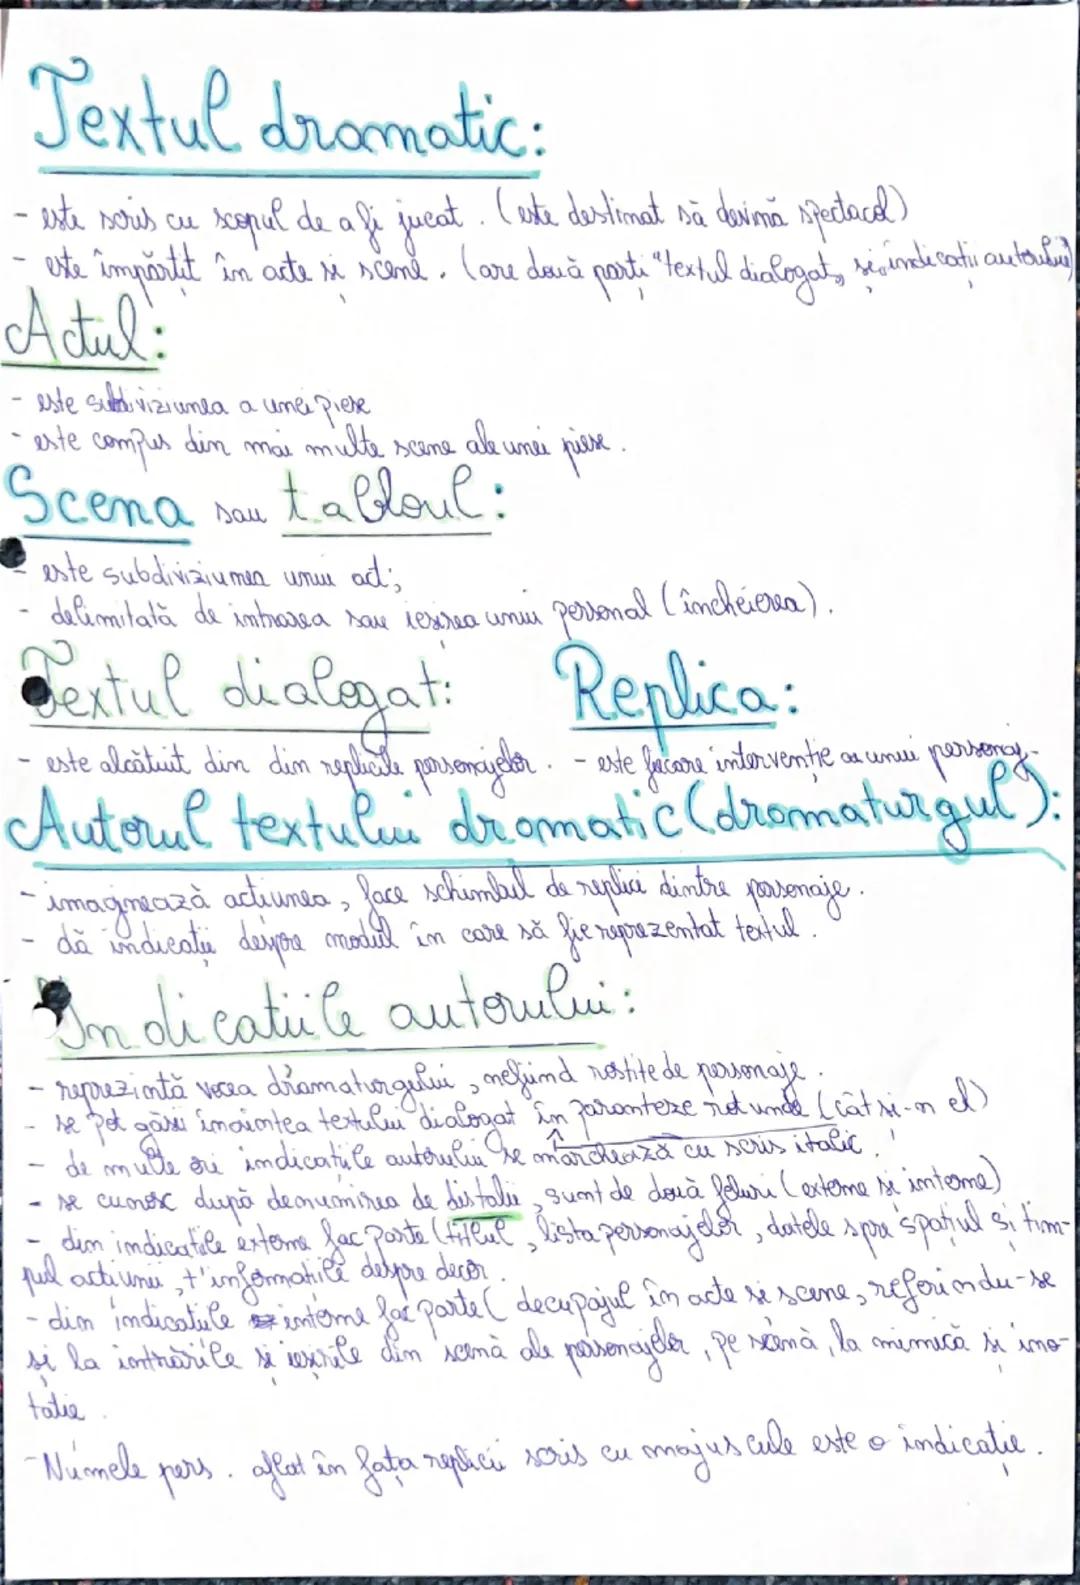 Textul dramatic:
- este scris cu scopul de a fi jucat. (este destinat să devină spectacol)
- este împărțit în acte și scene. (are două părți "textul dialogat„ și „indicații autorului)
Actul:
- este subdiviziunea a unei piese
- este compus din mai multe scene ale unei piese.
Scena sau tabloul:
- este subdiviziunea unui act;
- delimitată de intrarea sau ieșirea unui personal (încheierea).
Textul dialogat: Replica:
- este alcătuit din din replicile personajelor. - este fiecare intervenție a unui personaj-
Autorul textului dramatic (dramaturgul):
- imaginează acțiunea, face schimbul de replici dintre personaje.
- dă indicații despre modul în care să fie reprezentat textul.
Indicațiile autorului:
- reprezintă vocea dramaturgului, nefiind rostite de personaje.
- se pot găsi înaintea textului dialogat în paranteze rotunde (cât și-n el)
- de multe ori indicațiile autorului se marchează cu scris italic.
- se cunosc după denumirea de distalii, sunt de două feluri (externe și interne)
- din indicațile externe fac parte (titlul, lista personajelor, datele spre spațiul și tim-
pul acțiunii, + informațiile despre decor.
- din indicațiile interne fac parte (decupajul în acte și scene, referindu-se
și la intrările și ieșirile din scenă ale personajelor, pe scenă, la mimică și ino-
tație.
- Numele pers. aflat în fața replicii scris cu majuscule este o indicație.